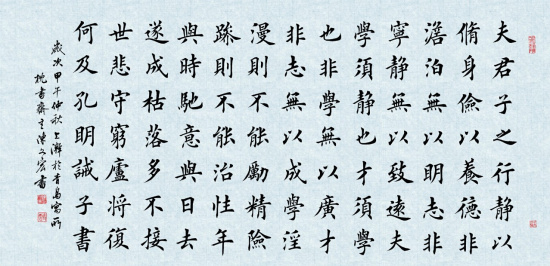 夫君子之行静以
脩身儉以養德非
澹泊無以明志非
寧静無以致遠夫
學須静也才須學
也非學無以廣才
非志無以成學淫
漫則不能勵精險
躁則不能治性年
與時馳意與日去
遂成枯落多不接
世悲守窮廬將復
何及孔明誡子書
歲次甲午仲秋上澣於青島寓所
枕書齋主陳文宏書